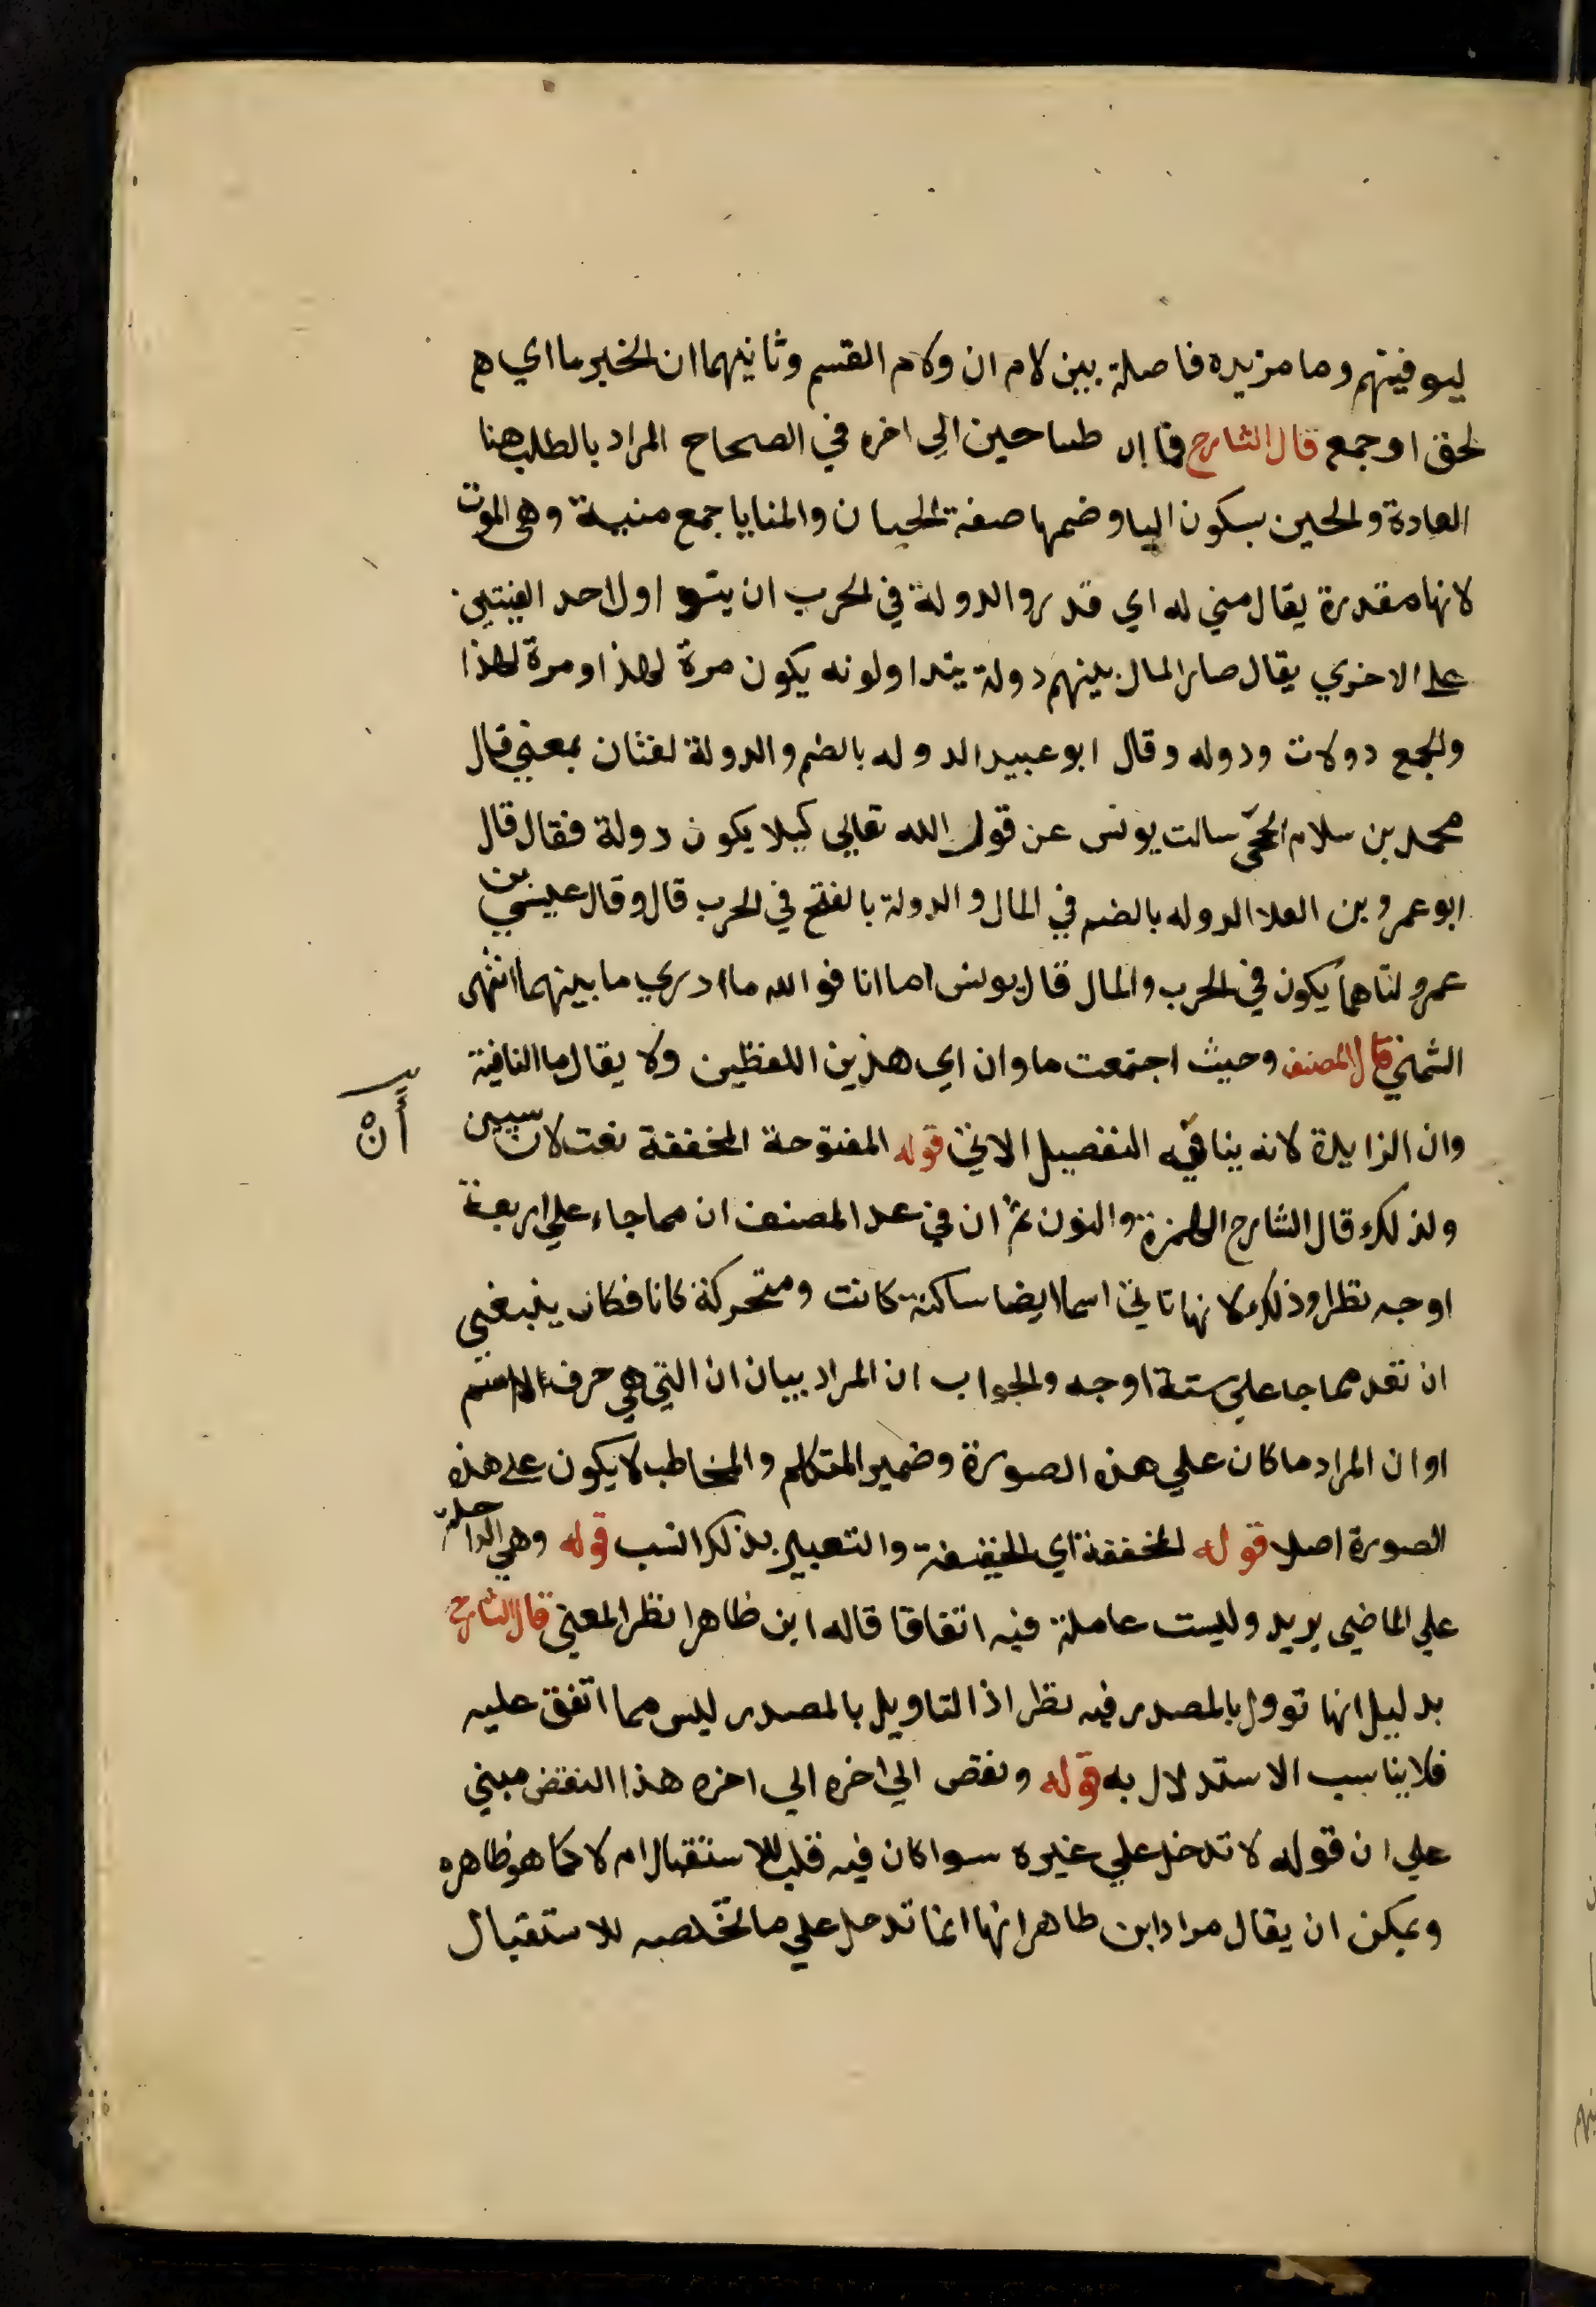 ليوفينهم وما مزيده فاصلة بين لام ان ولام القسم وثانيهما ان الخبر ما اي هم
لحق او جمع قال الشارح فما ان طبنا حين الي اخره في الصحاح المراد بالطلب هنا
العادة والجبن بسكون اليا وضمها صفة الجبان والمنايا جمع منية وهي الموت
لانها مقدرة يقال مني له اي قدر والدولة في الحرب ان يتداول احد الفئتين
على الاخري يقال صار المال بينهم دولة يتداولونه يكون مرة لهذا ومرة لهذا
والجمع دولات ودوله وقال ابو عبيد الدوله بالضم والدولة لغتان بمعني قال
محمد بن سلام الجمحي سالت يونس عن قول الله تعالي كيلا يكون دولة فقال قال
ابو عمرو بن العلا الدوله بالضم في المال والدولة بالفتح في الحرب قال وقال عيسي بن
عمرو لتاهما يكون في الحرب والمال قال يونس اما انا فو الله ما ادري ما بينهما انتهى
الشمني قال المصنف وحيث اجتمعت ما وان اي هذين اللفظين ولا يقال ما النافية
وان الزايدة لانه ينافيه التفصيل الاتي قوله المفتوحة المخففة نعت لان
أَنْ
ولذلك قال الشارح الهمزة والنون ثم ان في عد المصنف ان مما جاء علي اربعة
اوجه نظرا وذلك لانها تاتي اسما ايضا ساكنة كانت ومتحركة كانا فكان ينبغي
ان تعد مما جا علي ستة اوجه والجواب ان المراد بيان ان التي هي حرف
او ان المراد ما كان علي هذه الصورة وضمير المتكلم والمخاطب لا يكون على هذه
الصورة اصلا قوله المخففة اي الخفيفة والتعبير بذلك انسب قوله وهي الداخلة
علي الماضي يريد وليست عاملة فيه اتفاقا قاله ابن ظاهرا نظر المعني قال الشارح
بدليل انها توول بالمصدر فيه نظر اذ التاويل بالمصدر ليس مما اتفق عليه
فلا يناسب الاستدلال به قوله ونقض الي اخره الي اخره هذا النقض مبني
علي ان قوله لا تدخل علي غيره سوا كان فيه قلب للاستقبال ام لا كما هو ظاهره
ويمكن ان يقال مراد ابن طاهر انها انما تدخل علي ما تخلصه للاستقبال